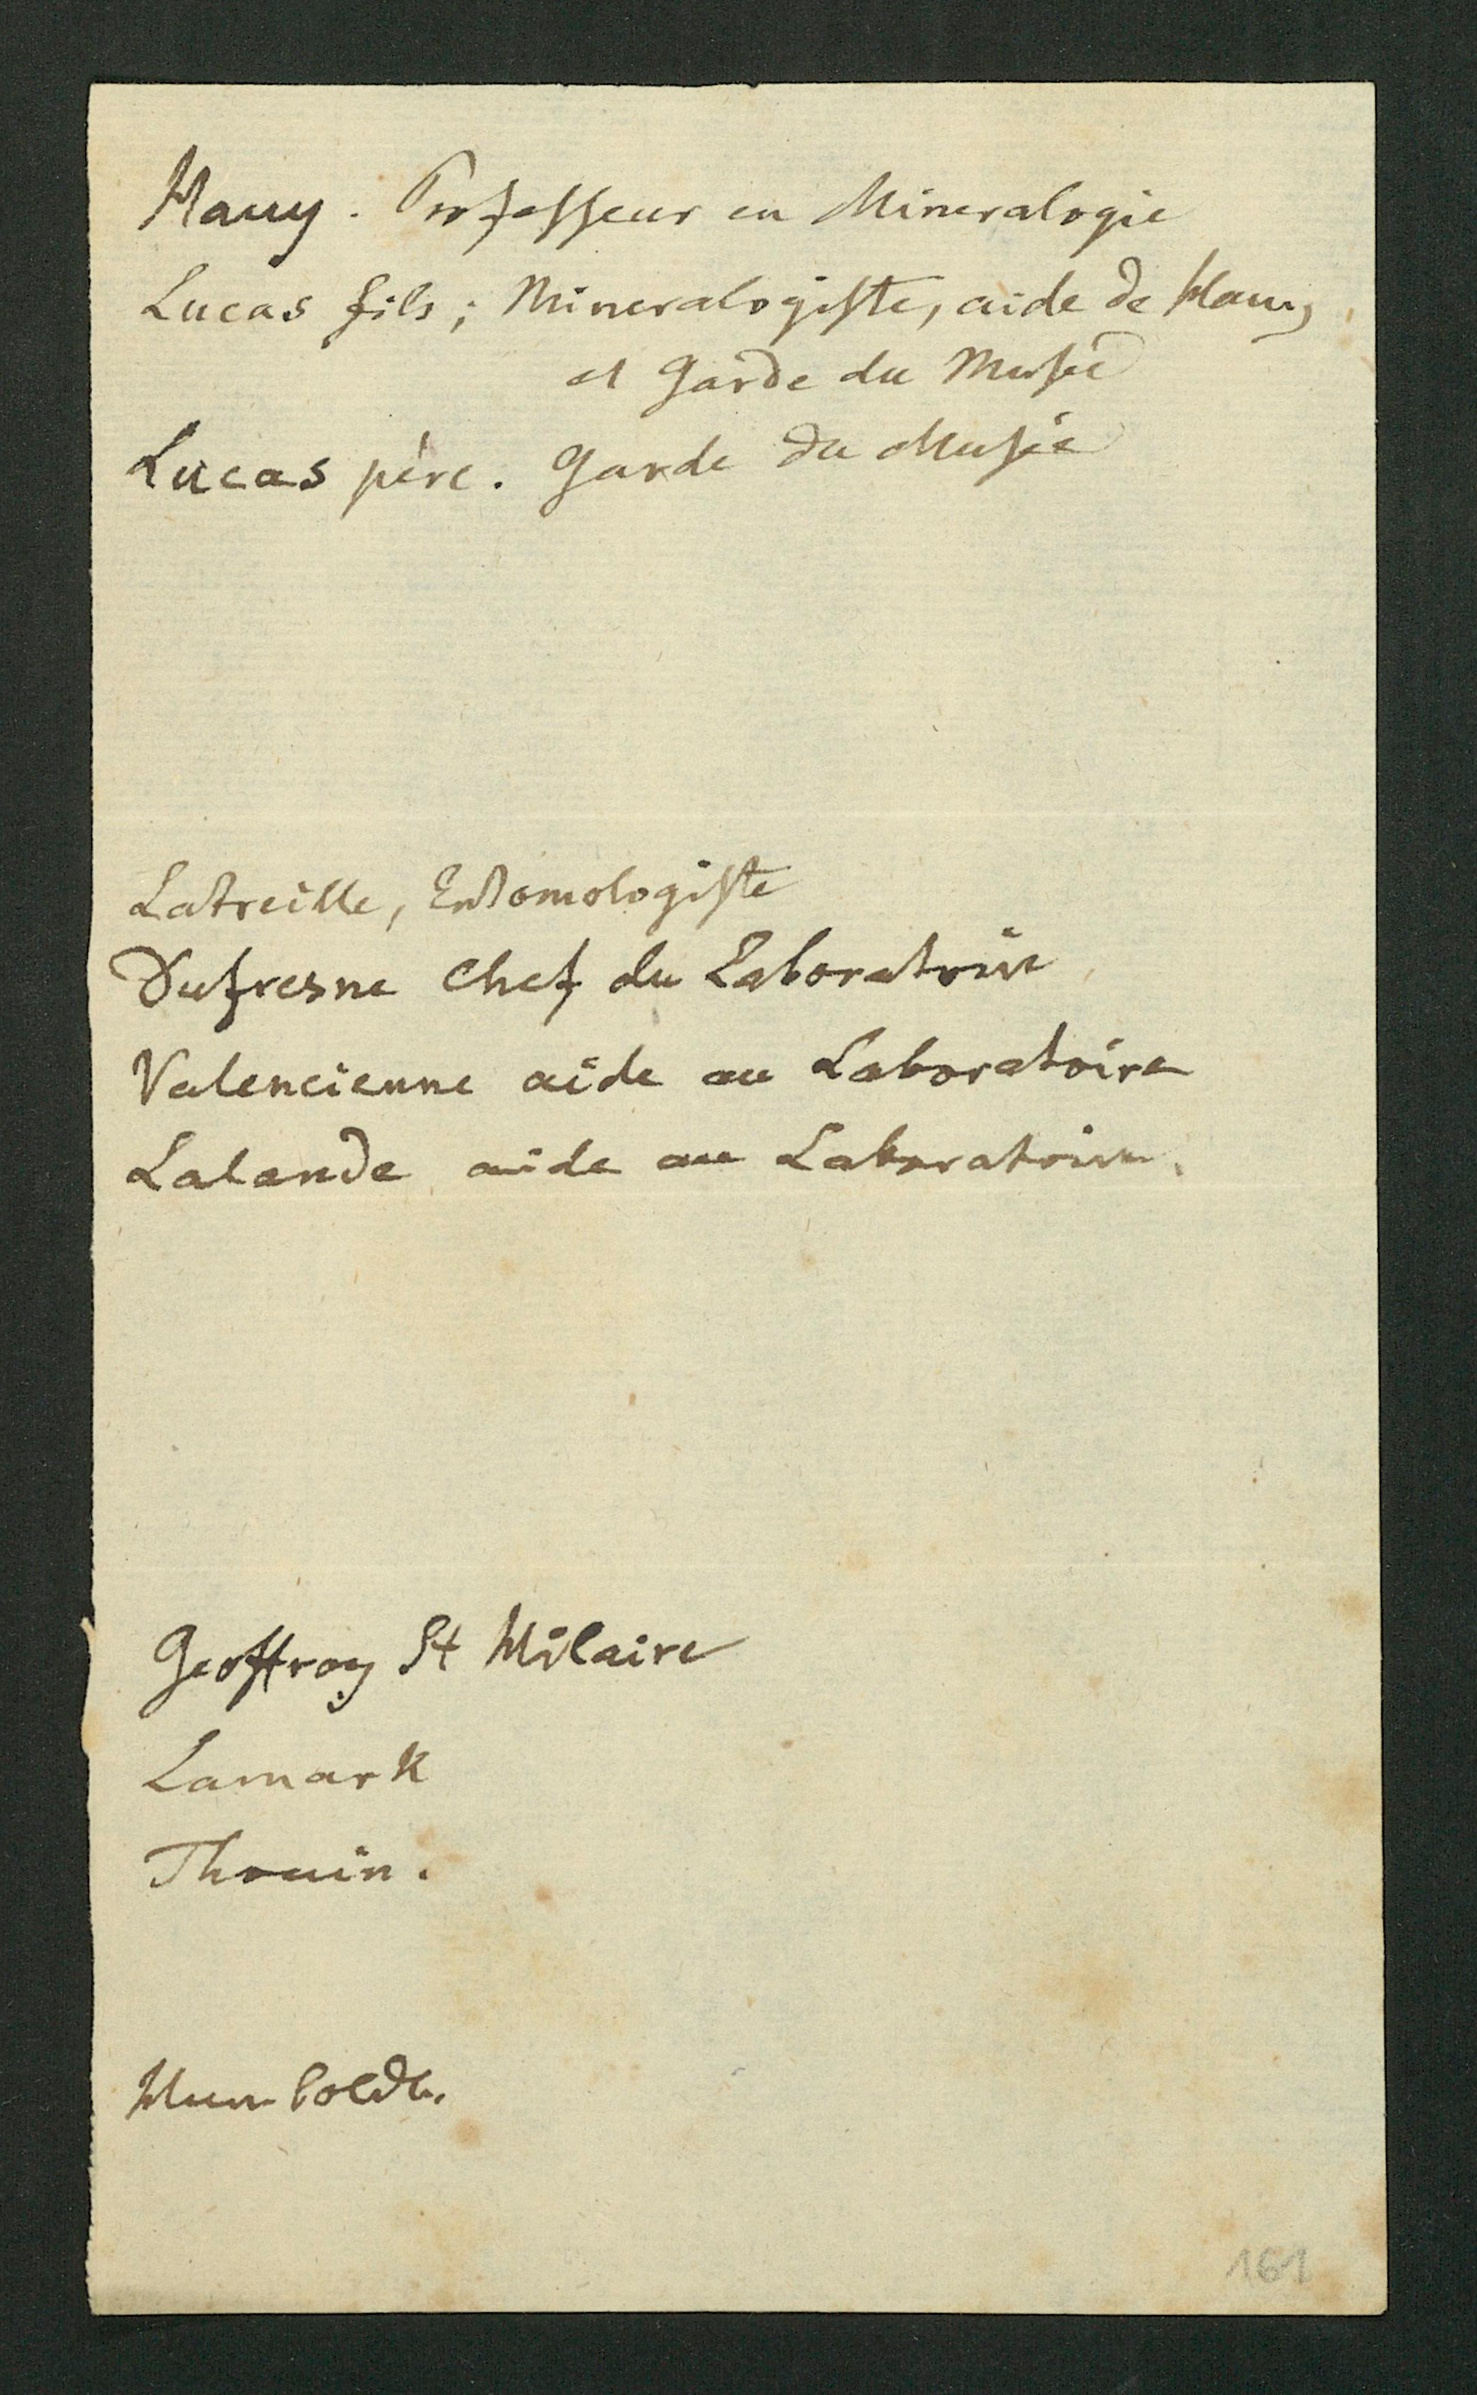 Hauy. Professeur en Mineralogie
Lucas fils; Mineralogiste, aide de Hauy
et Garde du Musée
Lucas père. Garde du Musée
Latreille, Entomologiste
Dufresne Chef du Laboratoire
Valencienne aide au Laboratoire
Lalande aide au Laboratoire.
Geoffroy St Hilaire
Lamark
Thouin.
Humboldt.
161